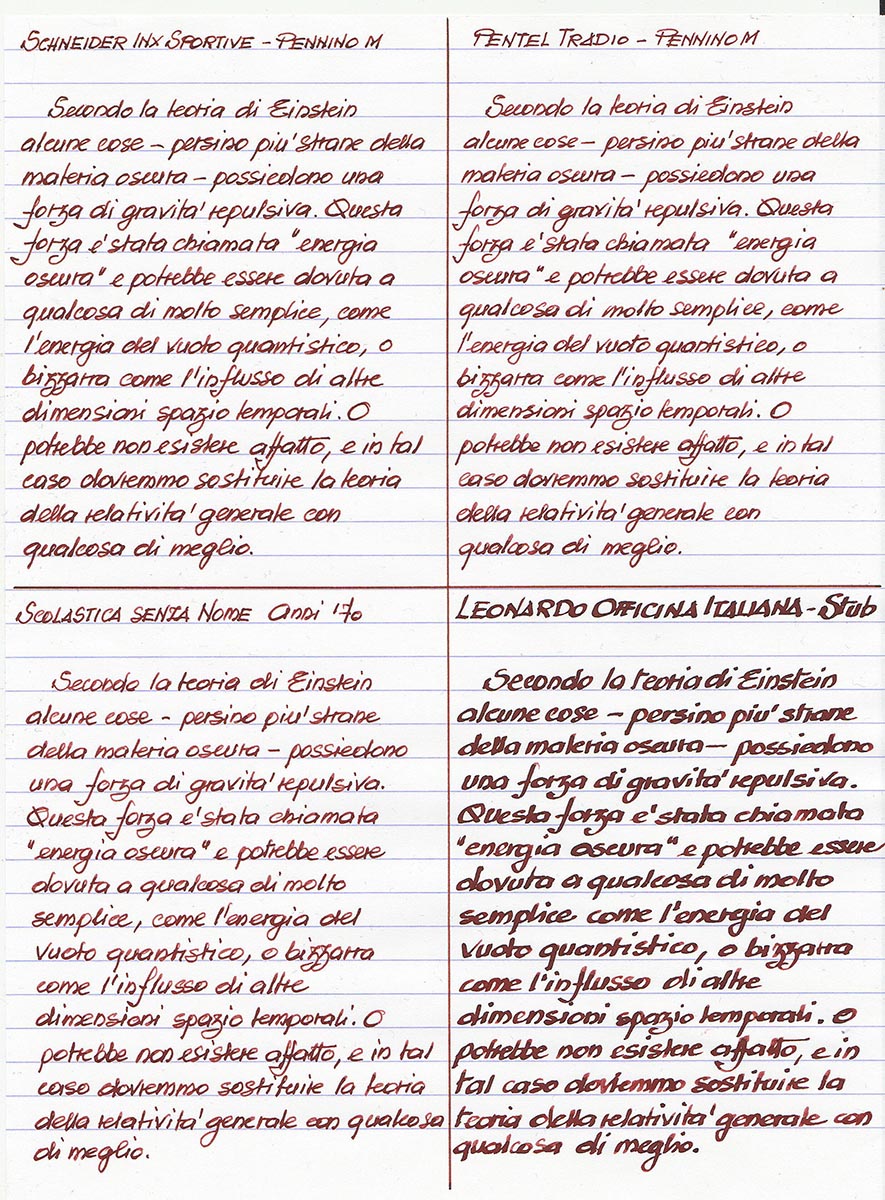 SCHNEIDER INX SPORTIVE – PENNINO M
Secondo la teoria di Einstein
alcune cose – persino piu' strane della
materia oscura – possiedono una
forza di gravita' repulsiva. Questa
forza e' stata chiamata "energia
oscura" e potrebbe essere dovuta a
qualcosa di molto semplice, come
l'energia del vuoto quantistico, o
bizzarra come l'influsso di altre
dimensioni spazio temporali. O
potrebbe non esistere affatto, e in tal
caso dovremmo sostituire la teoria
della relativita' generale con
qualcosa di meglio.
PENTEL TRADIO – PENNINO M
Secondo la teoria di Einstein
alcune cose – persino piu' strane della
materia oscura – possiedono una
forza di gravita' repulsiva. Questa
forza e' stata chiamata "energia
oscura" e potrebbe essere dovuta a
qualcosa di molto semplice, come
l'energia del vuoto quantistico, o
bizzarra come l'influsso di altre
dimensioni spazio temporali. O
potrebbe non esistere affatto, e in tal
caso dovremmo sostituire la teoria
della relativita' generale con
qualcosa di meglio.
SCOLASTICA SENZA NOME Anni '70
Secondo la teoria di Einstein
alcune cose – persino piu' strane
della materia oscura – possiedono
una forza di gravita' repulsiva.
Questa forza e' stata chiamata
"energia oscura" e potrebbe essere
dovuta a qualcosa di molto
semplice, come l'energia del
vuoto quantistico, o bizzarra
come l'influsso di altre
dimensioni spazio temporali. O
potrebbe non esistere affatto, e in tal
caso dovremmo sostituire la teoria
della relativita' generale con qualcosa
di meglio.
LEONARDO OFFICINA ITALIANA – Stub
Secondo la teoria di Einstein
alcune cose – persino piu' strane
della materia oscura – possiedono
una forza di gravita' repulsiva.
Questa forza e' stata chiamata
"energia oscura" e potrebbe essere
dovuta a qualcosa di molto
semplice come l'energia del
vuoto quantistico, o bizzarra
come l'influsso di altre
dimensioni spazio temporali. O
potrebbe non esistere affatto, e in
tal caso dovremmo sostituire la
teoria della relativita' generale con
qualcosa di meglio.